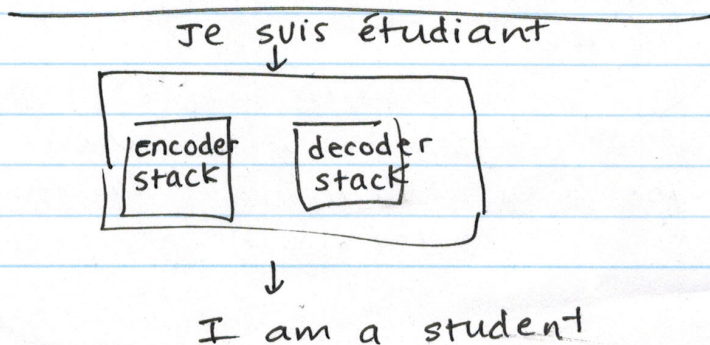 Je suis étudiant
↓
encoder stack
decoder stack
↓
I am a student